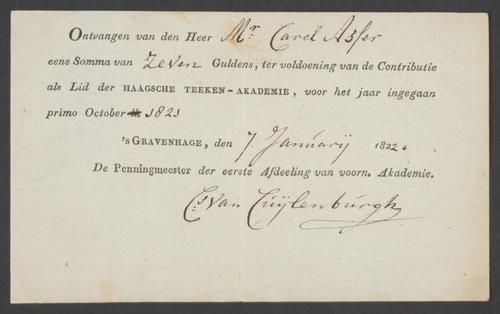 Ontvangen van den Heer Mr. Carel Asser
eene Somma van Zeven Guldens, ter voldoening van de Contributie
als Lid der HAAGSCHE TEEKEN-AKADEMIE, voor het jaar ingegaan
primo October 1821
's GRAVENHAGE, den 7 Januarij 1822.
De Penningmeester der eerste Afdeeling van voorn. Akademie.
Cs. Van Cuijlenburgh